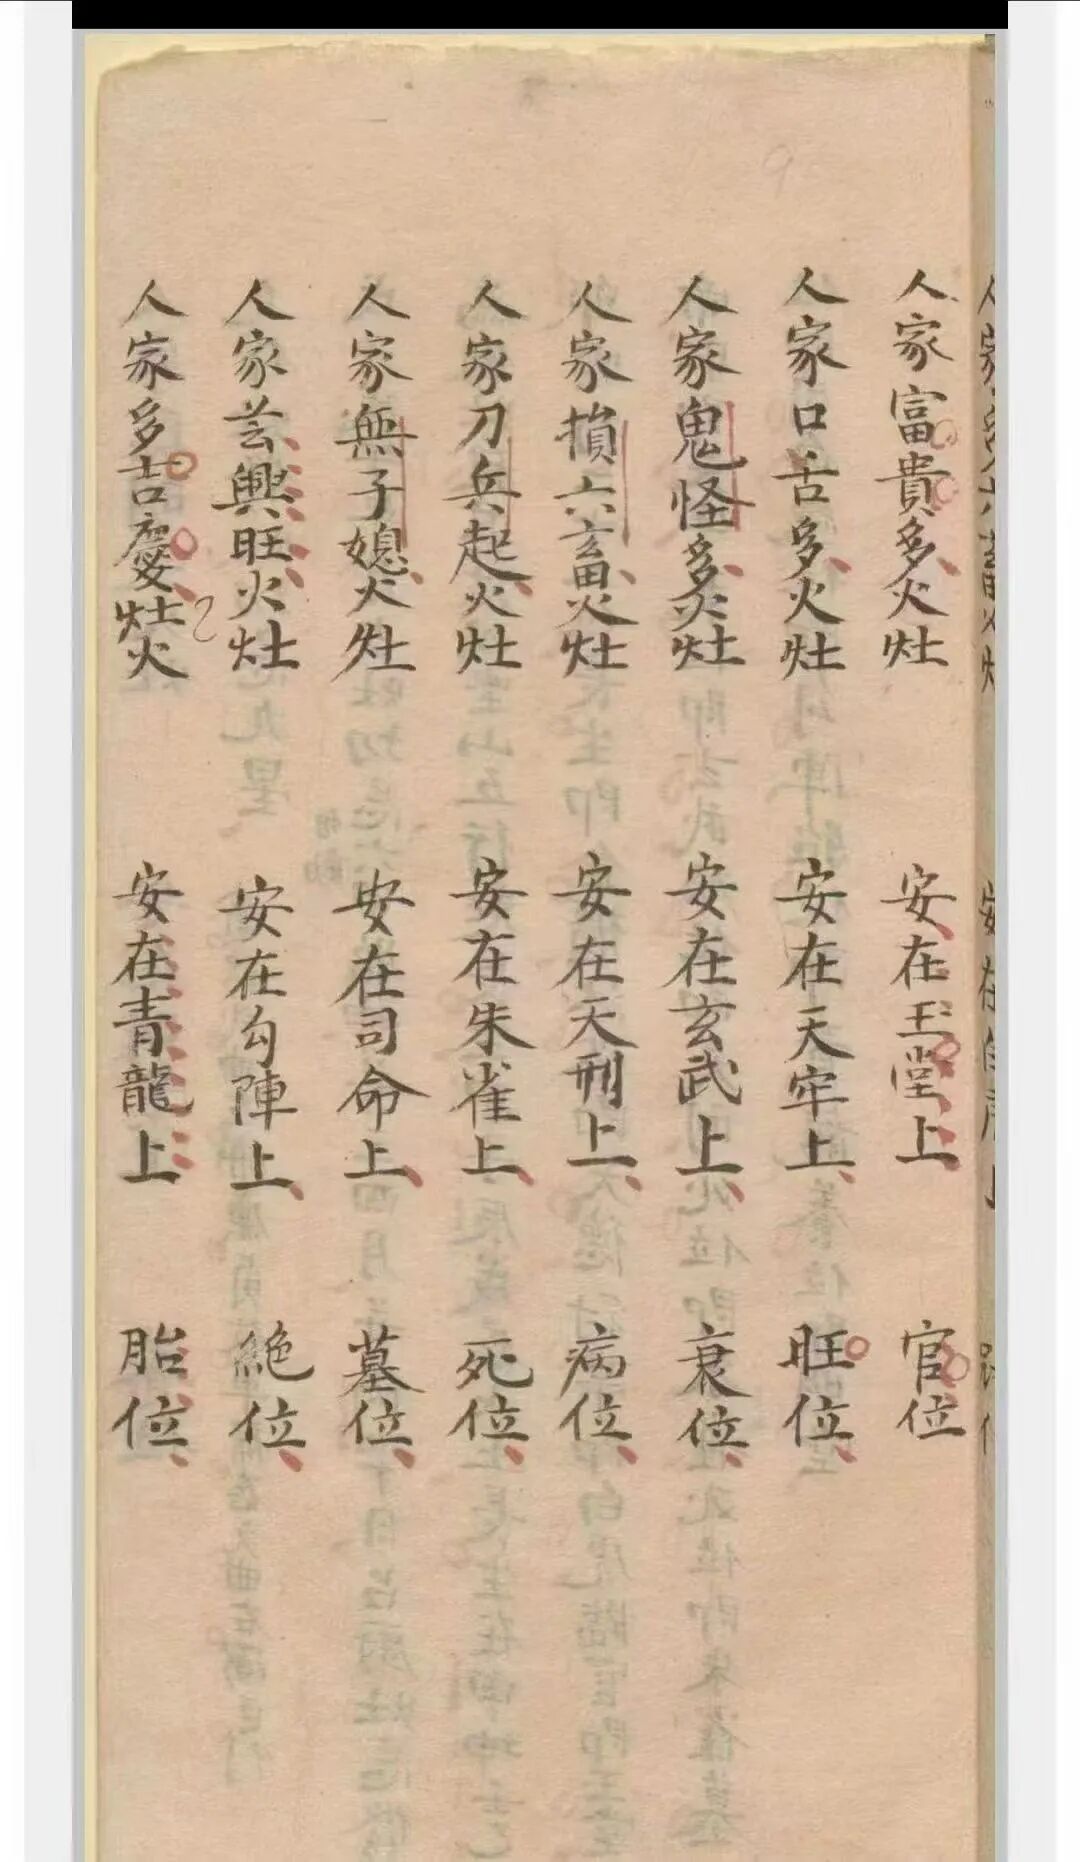 人家富貴多火灶 安在玉堂上 官位
人家口舌多火灶 安在天牢上 旺位
人家鬼怪多火灶 安在玄武上 衰位
人家損六畜火灶 安在天刑上 病位
人家刀兵起火灶 安在朱雀上 死位
人家無子媳火灶 安在司命上 墓位
人家芸興旺火灶 安在勾陣上 絕位
人家多吉慶灶火 安在青龍上 胎位